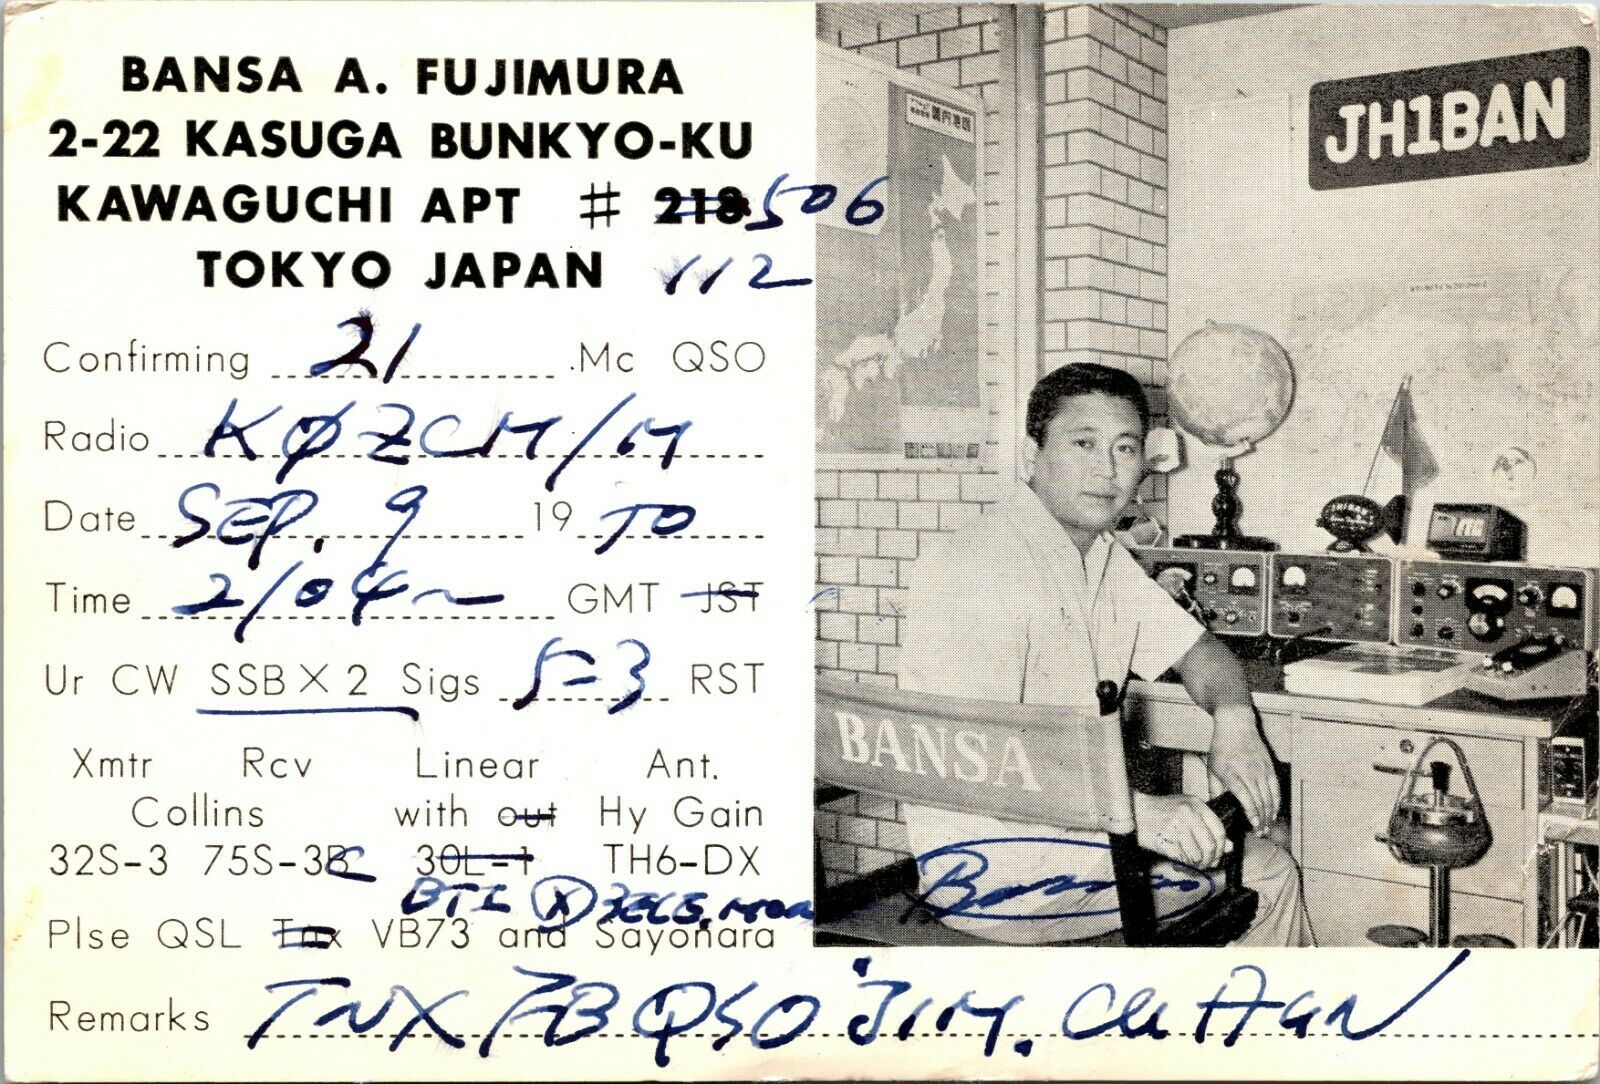 BANSA A. FUJIMURA
2-22 KASUGA BUNKYO-KU
KAWAGUCHI APT # 218 506
TOKYO JAPAN 112
Confirming 21 Mc QSO
Radio KØZCM/M
Date SEP. 9 1970
Time 2104~ GMT JST
Ur CW SSB X 2 Sigs 5-3 RST
Xmtr Rcv Linear Ant.
Collins with out Hy Gain
32S-3 75S-3B C 30L-1 TH6-DX
BTI
Plse QSL Tnx VB73 and Sayonara
Remarks TNX FB QSO JIM. CU AGN
JH1BAN
BANSA
Bansa